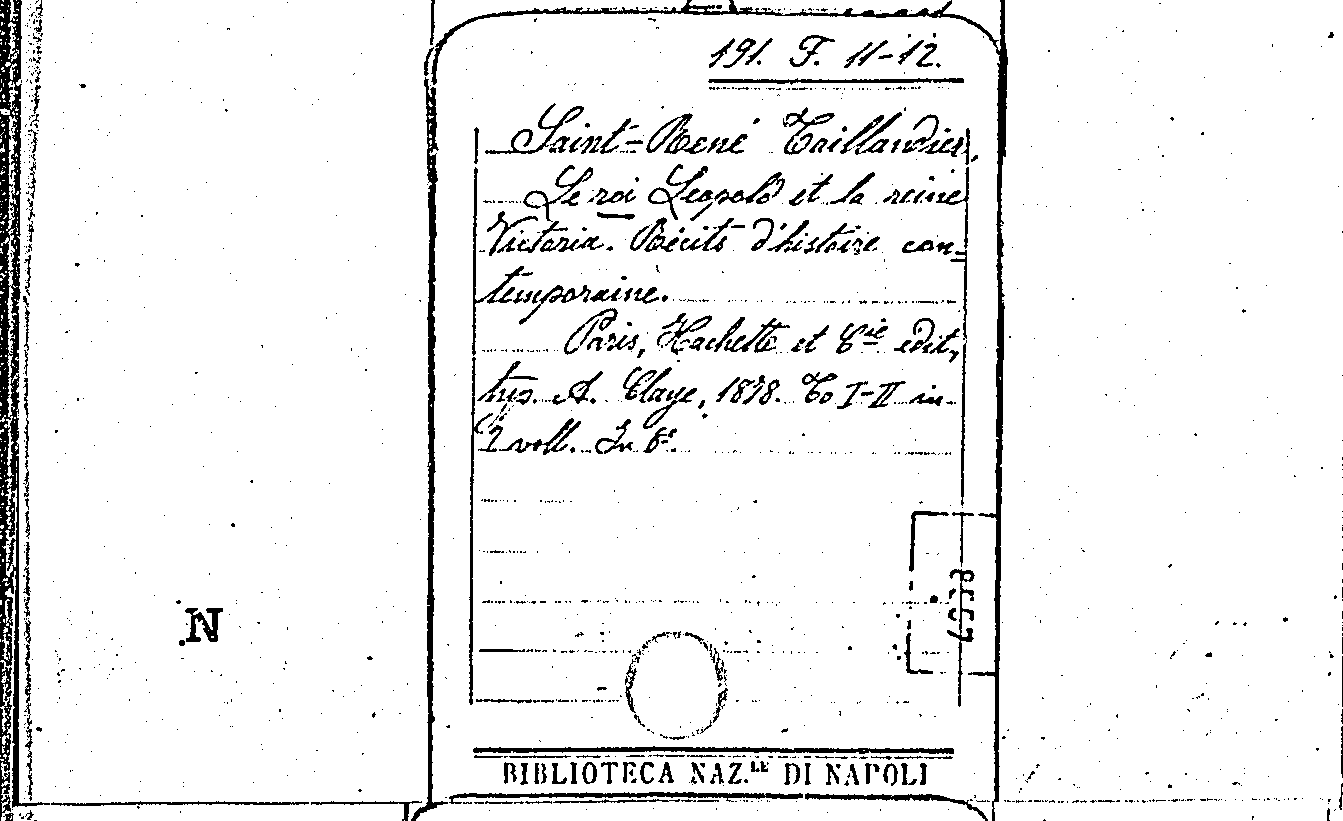 191. F. 11-12.
Saint-René Taillandier.
Le roi Léopold et la reine
Victoria. Récits d'histoire con=
temporaine.
Paris, Hachette et Cie édit,
typ. A. Claye, 1878. To I-II in
2 voll. In 8°.
N
BIBLIOTECA NAZ.LE DI NAPOLI